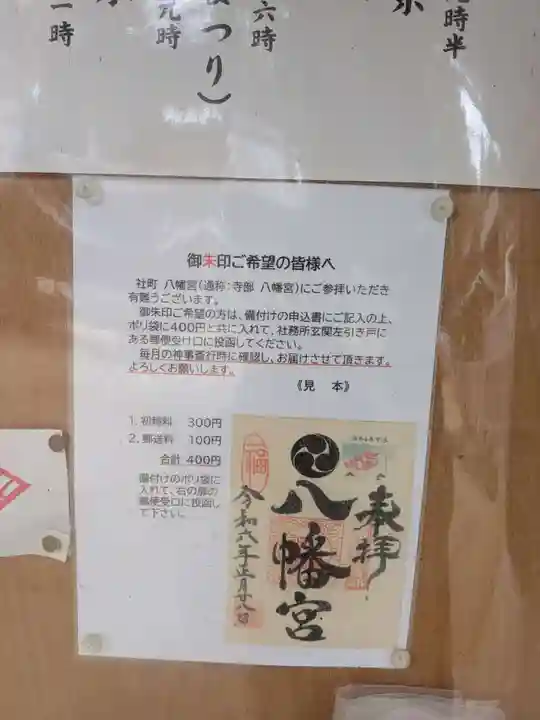 九時半
六時
まつり）
元時
一時
御朱印ご希望の皆様へ
社町 八幡宮（通称：寺部 八幡宮）にご参拝いただき
有難うございます。
御朱印ご希望の方は、備付けの申込書にご記入の上、
ポリ袋に400円と共に入れて、社務所玄関左引き戸に
ある郵便受け口に投函してください。
毎月の神事斎行時に確認し、お届けさせて頂きます。
よろしくお願いします。
《見 本》
1. 初穂料 300円
2. 郵送料 100円
合計 400円
備付けのポリ袋に
入れて、右の扉の
郵便受口に投函し
て下さい。
奉拝
八幡宮
令和六年正月廿八日